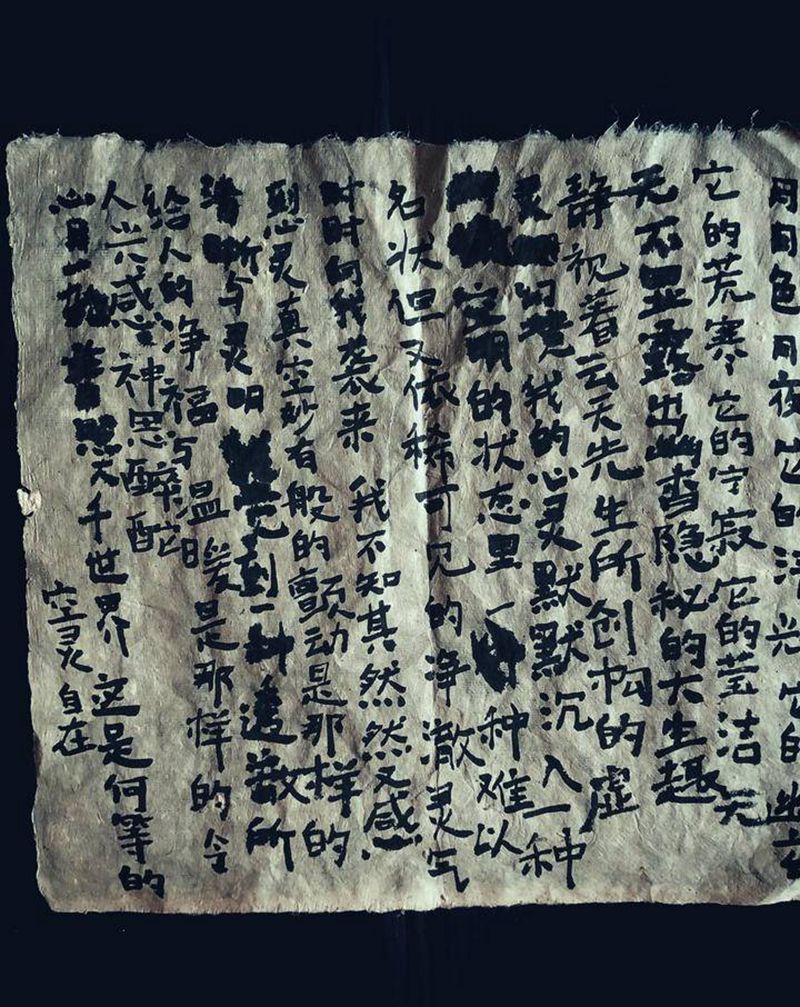 色月夜它的清光它的幽
它的荒寒它的宁寂它的莹洁无
无不显露出幽杳隐秘的大生趣
静视着云天先生所创构的虚
灵幻境我的心灵默默沉入一种
空明的状态里一种难以
名状但又依稀可见的净澈灵气
时时向我袭来我不知其然然又感
到心灵真空妙有般的颤动是那样的
清晰与灵明觉到一种透澈所
给人的净福与温暖是那样的令
人兴感神思醉酡
心月一轮普照大千世界这是何等的
空灵自在